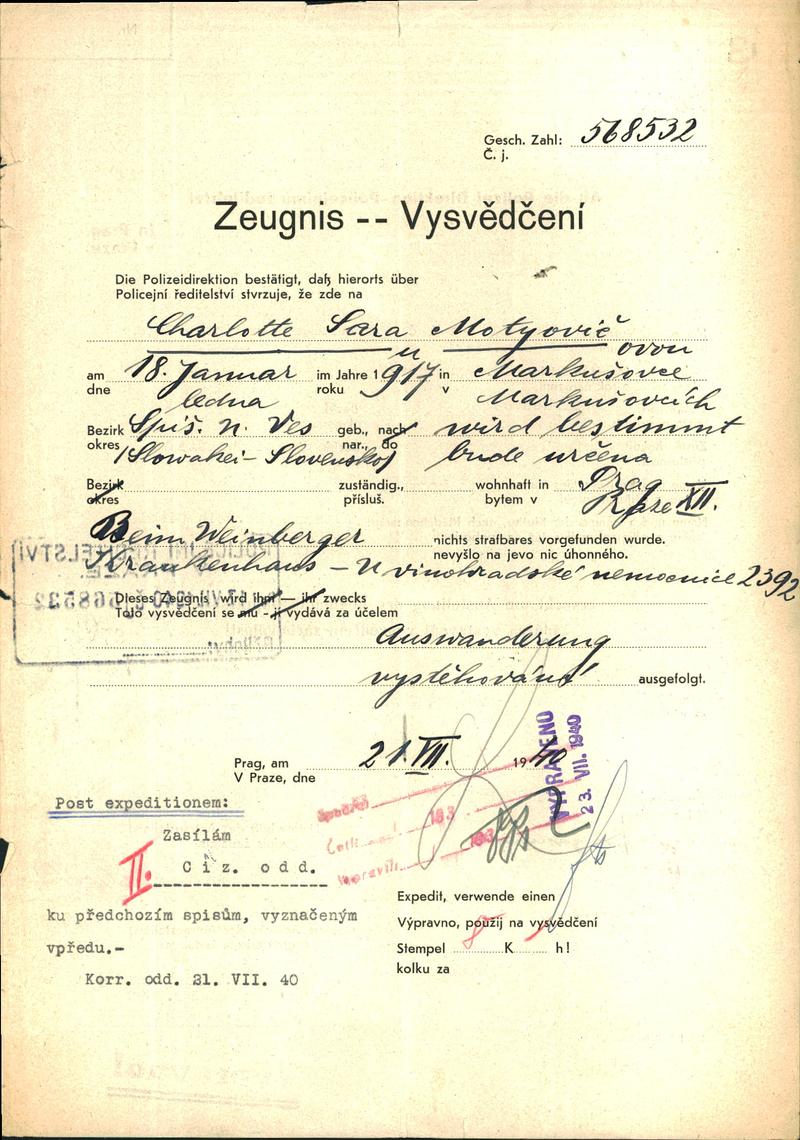 Gesch. Zahl: 568532
Č. j.
Zeugnis -- Vysvědčení
Die Polizeidirektion bestätigt, daß hierorts über
Policejní ředitelství stvrzuje, že zde na
Charlotte Sara Motyovič
u ovou
am 18. Januar im Jahre 1917 in Markušovce
dne ledna roku v Markušovcích
Bezirk Spiš. N. Ves geb., nach wird bestimmt
okres /Slowakei - Slovensko/ nar., do bude určena
Bezirk zuständig., wohnhaft in Prag
okres přísluš. bytem v Praze XII.
Beim Weinberger nichts strafbares vorgefunden wurde.
nevyšlo na jevo nic úhonného.
Krankenhaus - U vinohradské nemocnice 2392
Dieses Zeugnis wird ihm — ihr zwecks
Toto vysvědčení se mu - jí vydává za účelem
Auswanderung
vystěhování ausgefolgt.
Prag, am 21. VII. 1940
V Praze, dne
VYPRAVENO
23. VII. 1940
Post expeditionem:
Zasílám
II. Ciz. odd.
ku předchozím spisům, vyznačeným
vpředu.-
Korr. odd. 21. VII. 40
193
193
Expedit, verwende einen
Výpravno, použij na vysvědčení
Stempel K h!
kolku za